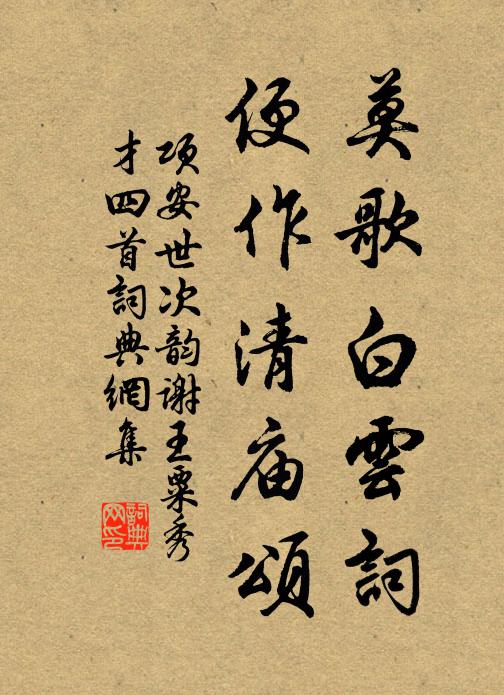 莫歌白雲詞
便作清庙頌
项安世次韵谢王粟秀
才四首詞典網集
詞典网印